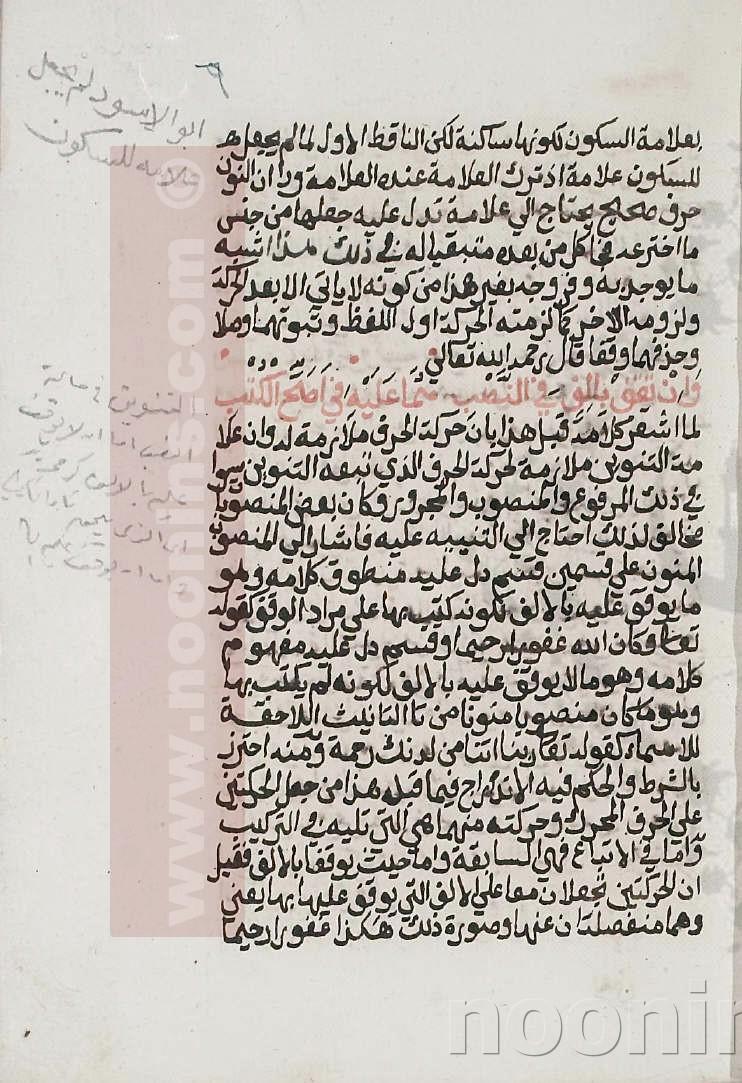 ابو الاسود لم يجعل
علامه للسكون
بعلامة السكون لكونها ساكنة لكن الناقط الاول لما لم يجعل هو
للسكون علامة اذ ترك العلامة عنده العلامة وراى ان النون
حرف صحيح يحتاج الى علامة تدل عليه جعلها من جنس
ما اخترعه فجا كل من بعده متبعا له في ذلك هذا اشبه
ما يوجه به وفر وجه بغير هذا من كونه لا ياتي الا بعد الحركة
ولزومه الاخر كما لزمته الحركة اول اللفظ وثبوتهما وصلا
وحذفهما وقفا قال رحمه الله تعالى
وان تقف بالف في النصب هما عليه في اصح الكتب
لما اشعر كلامه قبل هذا بان حركة الحرف ملازمة له وان علا
مة التنوين ملازمة لحركة الحرف الذي تبعه التنوين سوا
في ذلك المرفوع والمنصوب والمجرور وكان بعض المنصوب
مخالف لذلك احتاج الى التنبيه عليه فاشار الى المنصوب
المنون على قسمين قسم دل عليه منطوق كلامه وهو
ما يوقف عليه بالالف لكونه كتب بها على مراد الوقف كقوله
تعالى وكان الله غفورا رحيما وقسم دل عليه مفهوم
كلامه وهو ما لا يوقف عليه بالالف لكونه لم يكتب بها
وهو ما كان منصوبا منونا من تا التانيث اللاحقة
للاسماء كقوله تعالى ربنا اتنا من لدنك رحمة ومنه احترز
بالشرط والحكم فيه الاندراج فيما قبله هذا من جعل الحركتين
على الحرف المحرك وحركته منهما هي التي تليه في التركيب
واما في الاتباع فهي السابقة واما حيث يوقف بالالف فقيل
ان الحركتين تجعلان معا على الالف التي يوقف عليها بها يعني
وهما منفصلتان عنها وصورة ذلك هكذا غفورا رحيما
التنوين في حالة
النصب اما ان لا يوقف
عليه بالالف كرحمة
www.noonins.com ©
noonin